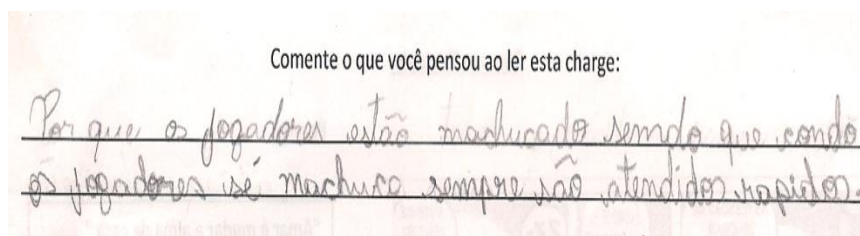 Comente o que você pensou ao ler esta charge:
Por que os jogadores estão machucado semdo que condo
os jogadores sé machuca sempre são atendidos rapidos.